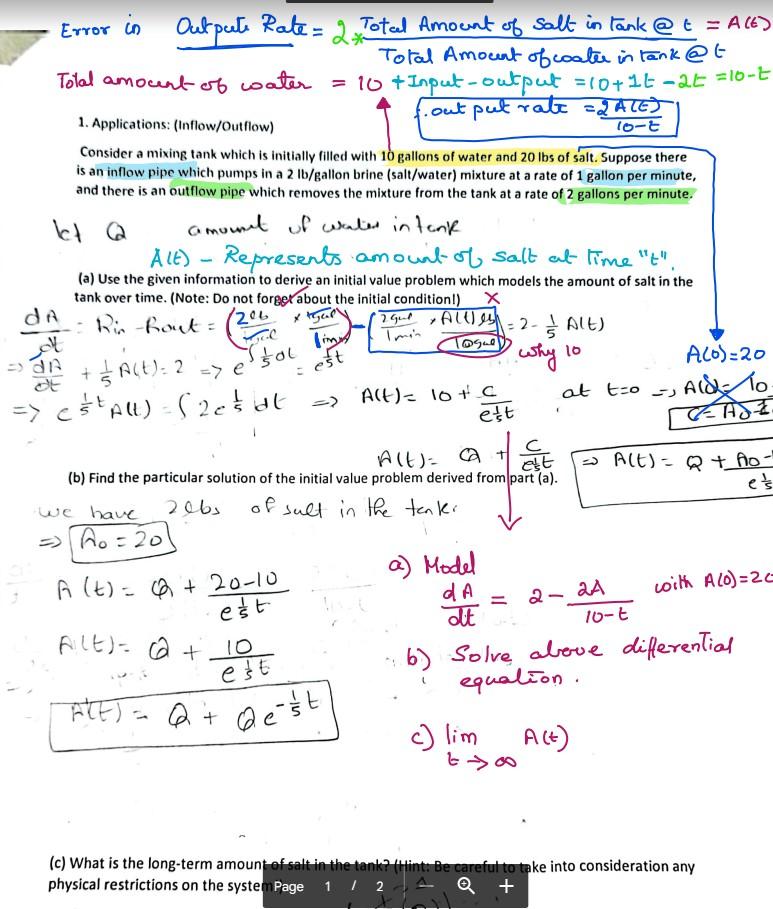 Error in Output Rate = 2 * Total Amount of Salt in tank @ t = A(t)
Total Amount of water in tank @ t
Total amount of water = 10 + Input - output = 10 + 1t - 2t = 10-t
∴ out put rate = 2 A(t)
10-t
1. Applications: (Inflow/Outflow)
Consider a mixing tank which is initially filled with 10 gallons of water and 20 lbs of salt. Suppose there
is an inflow pipe which pumps in a 2 lb/gallon brine (salt/water) mixture at a rate of 1 gallon per minute,
and there is an outflow pipe which removes the mixture from the tank at a rate of 2 gallons per minute.
let Q amount of water in tank
A(t) - Represents amount of salt at time "t".
(a) Use the given information to derive an initial value problem which models the amount of salt in the
tank over time. (Note: Do not forget about the initial condition!)
dA/dt = Rin - Rout = (2lb/1gal × 1gal/1min) - (2gal/1min × A(t) lb/10gal) = 2 - 1/5 A(t)
why 10
A(0)=20
=> dA/dt + 1/5 A(t) = 2 => e^∫1/5 dt = e^1/5t
=> e^1/5t A(t) = ∫2e^1/5 dt => A(t) = 10 + C/e^1/5t at t=0 => A(0) = 10
C = A0-1
A(t) = Q + C/e^1/5t => A(t) = Q + A0-
e^1/5
(b) Find the particular solution of the initial value problem derived from part (a).
we have 2lbs of salt in the tank.
=> A0 = 20
A(t) = Q + 20-10/e^1/5t
A(t) = Q + 10/e^1/5t
A(t) = Q + Qe^-1/5t
a) Model
dA/dt = 2 - 2A/10-t with A(0)=20
b) Solve above differential
equation.
c) lim A(t)
t → ∞
(c) What is the long-term amount of salt in the tank? (Hint: Be careful to take into consideration any
physical restrictions on the system
Page 1 / 2 − +